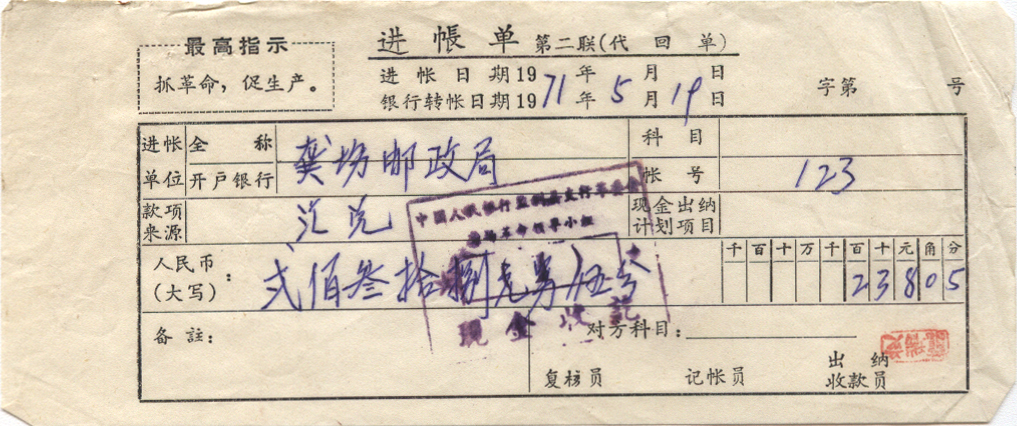 最高指示
抓革命，促生产。
进帐单 第二联(代回单)
进帐日期19 年 月 日
银行转帐日期1971年5月19日
字第 号
进帐单位 全称 龚场邮政局 科目
开户银行 帐号 123
款项来源 汇兑 现金出纳计划项目
中国人民银行监利县支行革委会
革命领导小组
现金收讫
人民币(大写)： 弍佰叁拾捌元零伍分
千百十万千百十元角分
23805
备註：
对方科目：
复核员 记帐员 出纳收款员